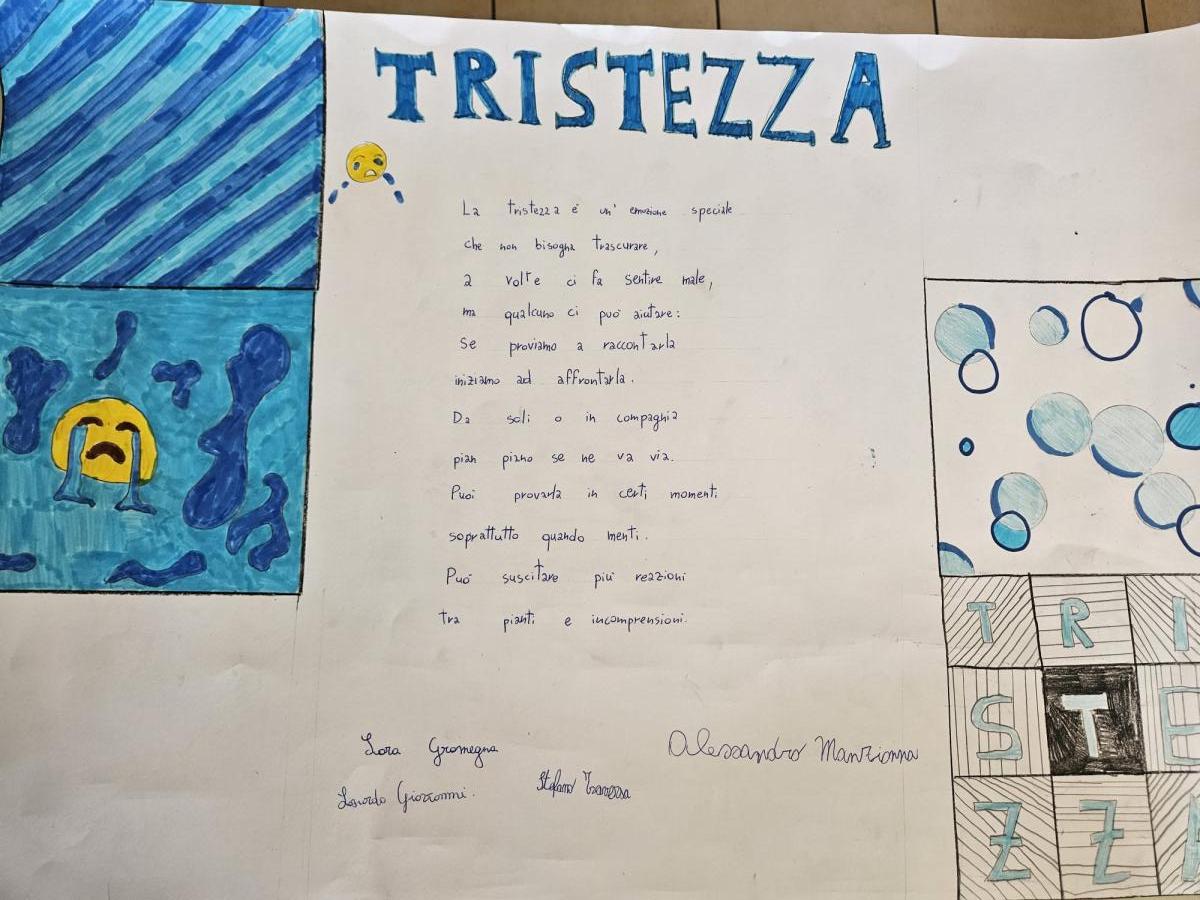 TRISTEZZA
La tristezza è un' emozione speciale
che non bisogna trascurare,
a volte ci fa sentire male,
ma qualcuno ci può aiutare:
Se proviamo a raccontarla
iniziamo ad affrontarla.
Da soli o in compagnia
pian piano se ne va via.
Puoi provarla in certi momenti
soprattutto quando menti.
Può suscitare più reazioni
tra pianti e incomprensioni.
Alessandro
Stefano
T R I
S T E
Z Z A